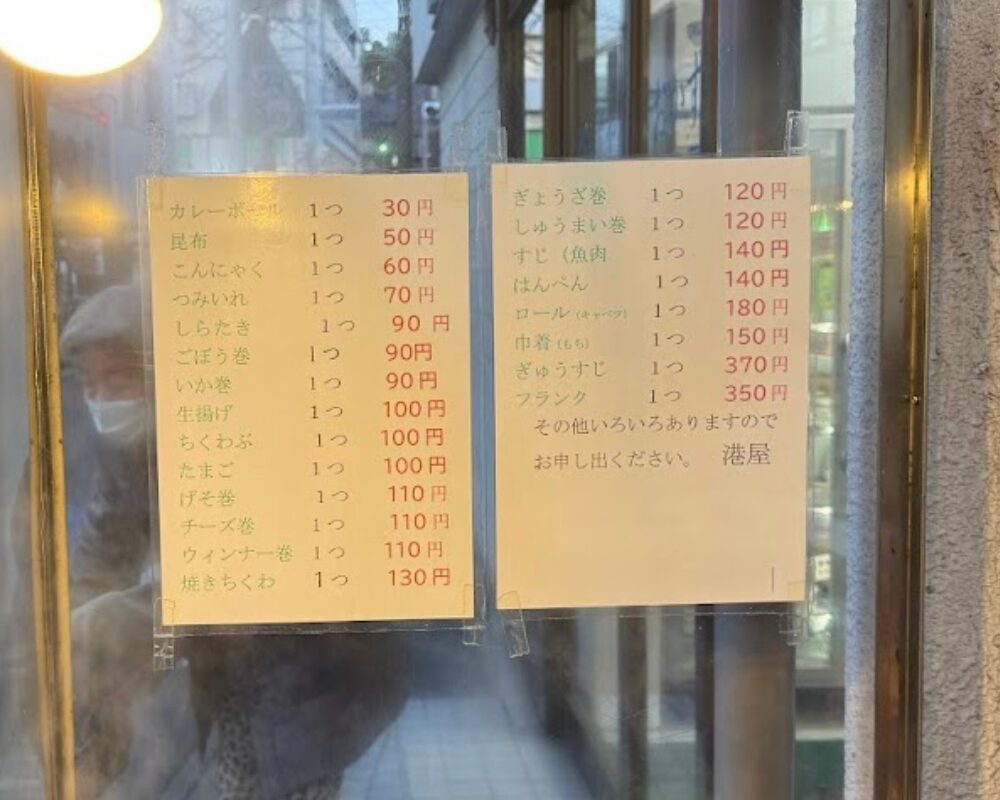 カレーボール 1つ 30円
昆布 1つ 50円
こんにゃく 1つ 60円
つみいれ 1つ 70円
しらたき 1つ 90円
ごぼう巻 1つ 90円
いか巻 1つ 90円
生揚げ 1つ 100円
ちくわぶ 1つ 100円
たまご 1つ 100円
げそ巻 1つ 110円
チーズ巻 1つ 110円
ウィンナー巻 1つ 110円
焼きちくわ 1つ 130円
ぎょうざ巻 1つ 120円
しゅうまい巻 1つ 120円
すじ（魚肉 1つ 140円
はんぺん 1つ 140円
ロール(キャベツ) 1つ 180円
巾着(もち) 1つ 150円
ぎゅうすじ 1つ 370円
フランク 1つ 350円
その他いろいろありますので
お申し出ください。 港屋